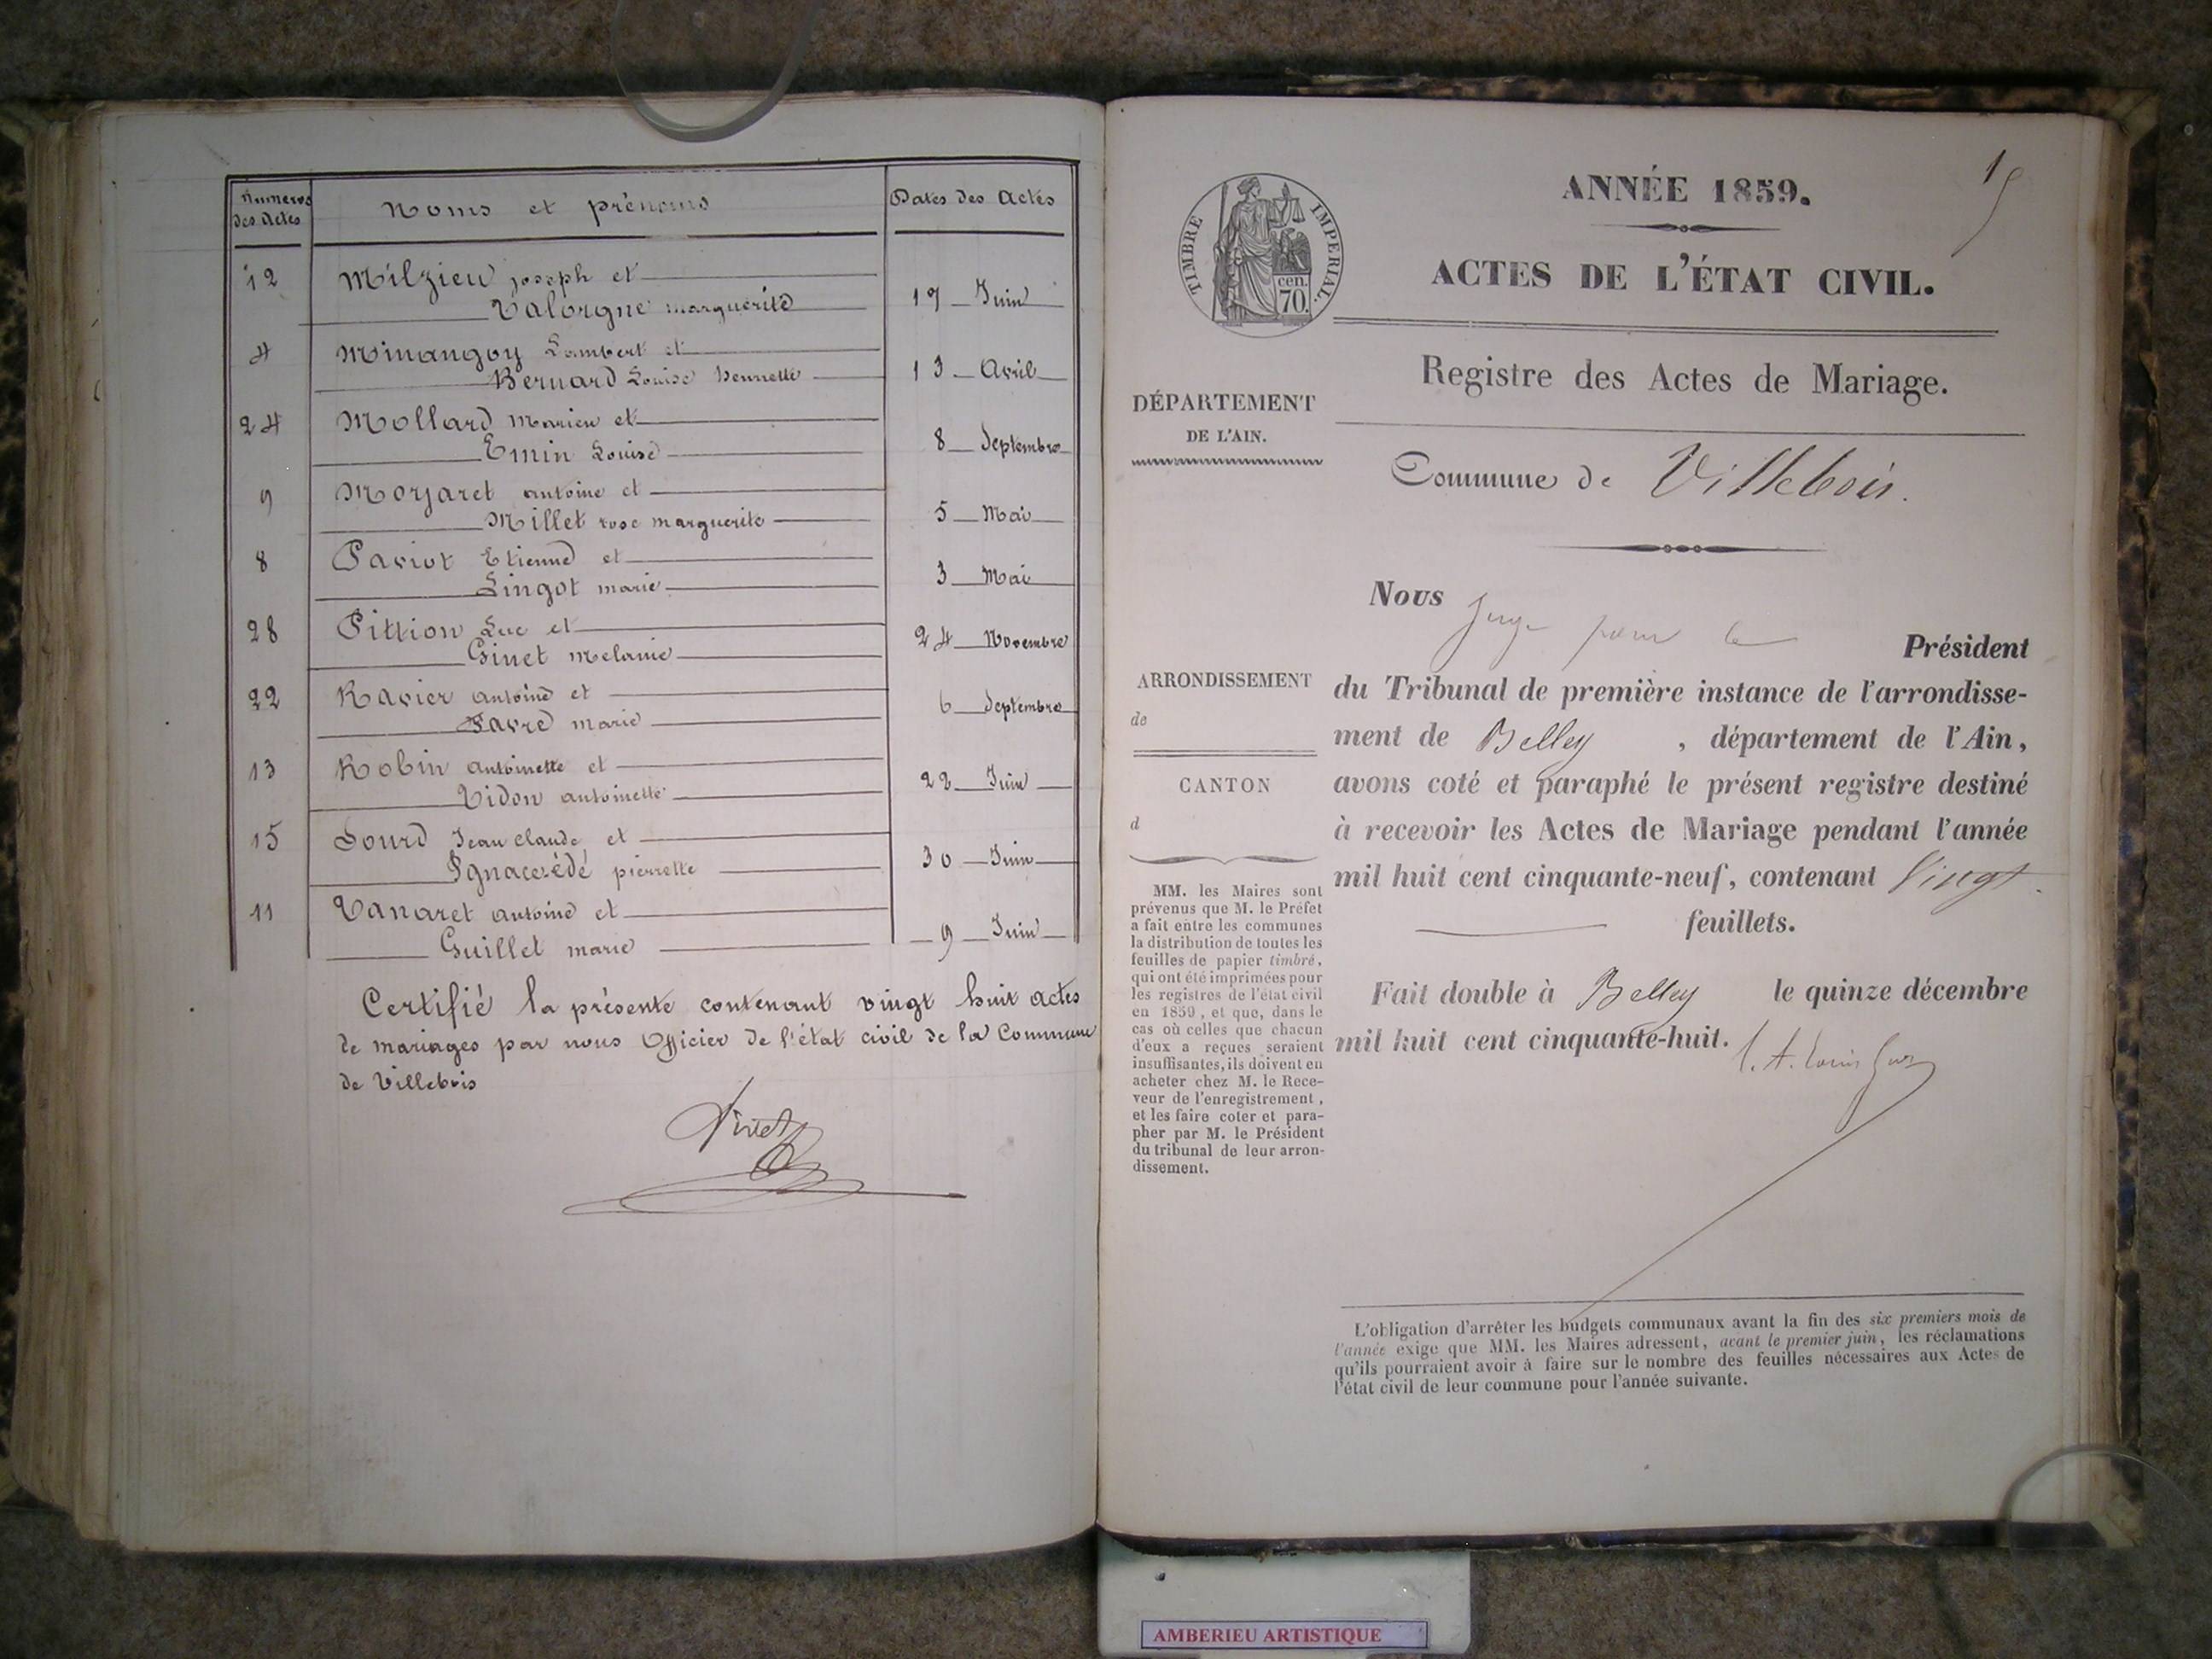 Numeros
des Actes
Noms et prénoms
Dates des Actes
12
Milzieu joseph et
Valorgne marguerite
17 Juin
4
Minangoy Lambert et
Bernard Louise henriette
13 Avril
24
Mollard Marien et
Emin Louise
8 Septembre
9
Moyaret antoine et
Millet rose marguerite
5 Mai
8
Paviot Etienne et
Lingot marie
3 Mai
28
Pittion Luc et
Ginet melanie
24 Novembre
22
Ravier antoine et
Favre marie
6 Septembre
13
Robin antoinette et
Vidon antoinette
22 Juin
15
Sourd Jean claude et
pierrette
30 Juin
11
Vanaret antoine et
Guillet marie
9 Juin
Certifié la présente contenant vingt huit actes
de mariages par nous Officier de l'état civil de la Commune
de Villebois
ANNÉE 1859.
ACTES DE L'ÉTAT CIVIL.
TIMBRE IMPERIAL.
cen.
70.
Registre des Actes de Mariage.
DÉPARTEMENT
DE L'AIN.
Commune de Villebois.
Nous Juge pour le
Président
ARRONDISSEMENT
de
CANTON
d
du Tribunal de première instance de l'arrondisse-
ment de Belley , département de l'Ain,
avons coté et paraphé le présent registre destiné
à recevoir les Actes de Mariage pendant l'année
mil huit cent cinquante-neuf, contenant Vingt
feuillets.
MM. les Maires sont
prévenus que M. le Préfet
a fait entre les communes
la distribution de toutes les
feuilles de papier timbré,
qui ont été imprimées pour
les registres de l'état civil
en 1859, et que, dans le
cas où celles que chacun
d'eux a reçues seraient
insuffisantes, ils doivent en
acheter chez M. le Rece-
veur de l'enregistrement,
et les faire coter et para-
pher par M. le Président
du tribunal de leur arron-
dissement.
Fait double à Belley le quinze décembre
mil huit cent cinquante-huit.
L'obligation d'arrêter les budgets communaux avant la fin des six premiers mois de
l'année exige que MM. les Maires adressent, avant le premier juin, les réclamations
qu'ils pourraient avoir à faire sur le nombre des feuilles nécessaires aux Actes de
l'état civil de leur commune pour l'année suivante.
AMBERIEU ARTISTIQUE